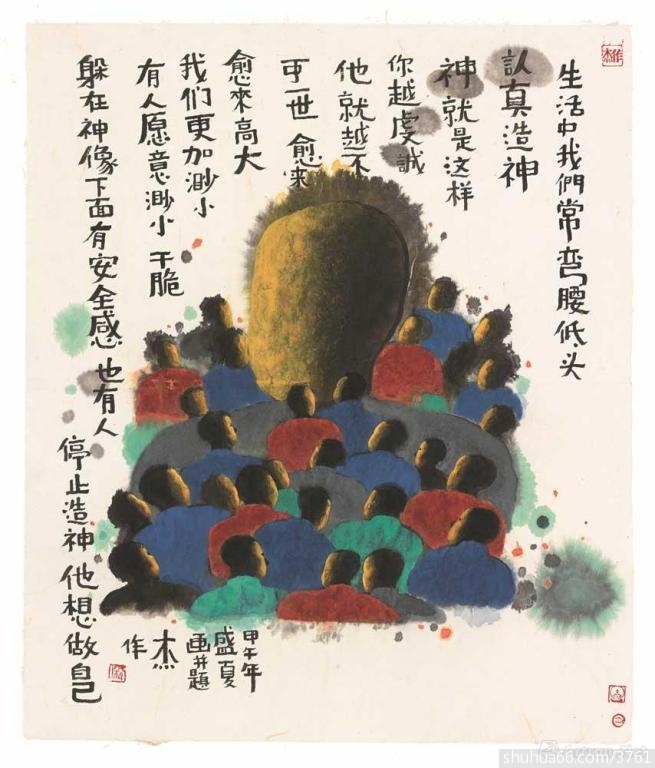 生活中我們常弯腰低头
认真造神
神就是这样
你越虔誠
他就越不
可一世 愈来
愈來高大
我们更加渺小
有人愿意渺小 干脆
躲在神像下面有安全感 也有人
停止造神 他想做自己
甲午年
盛夏
画并题
杰
作
shuhua66.com/3761